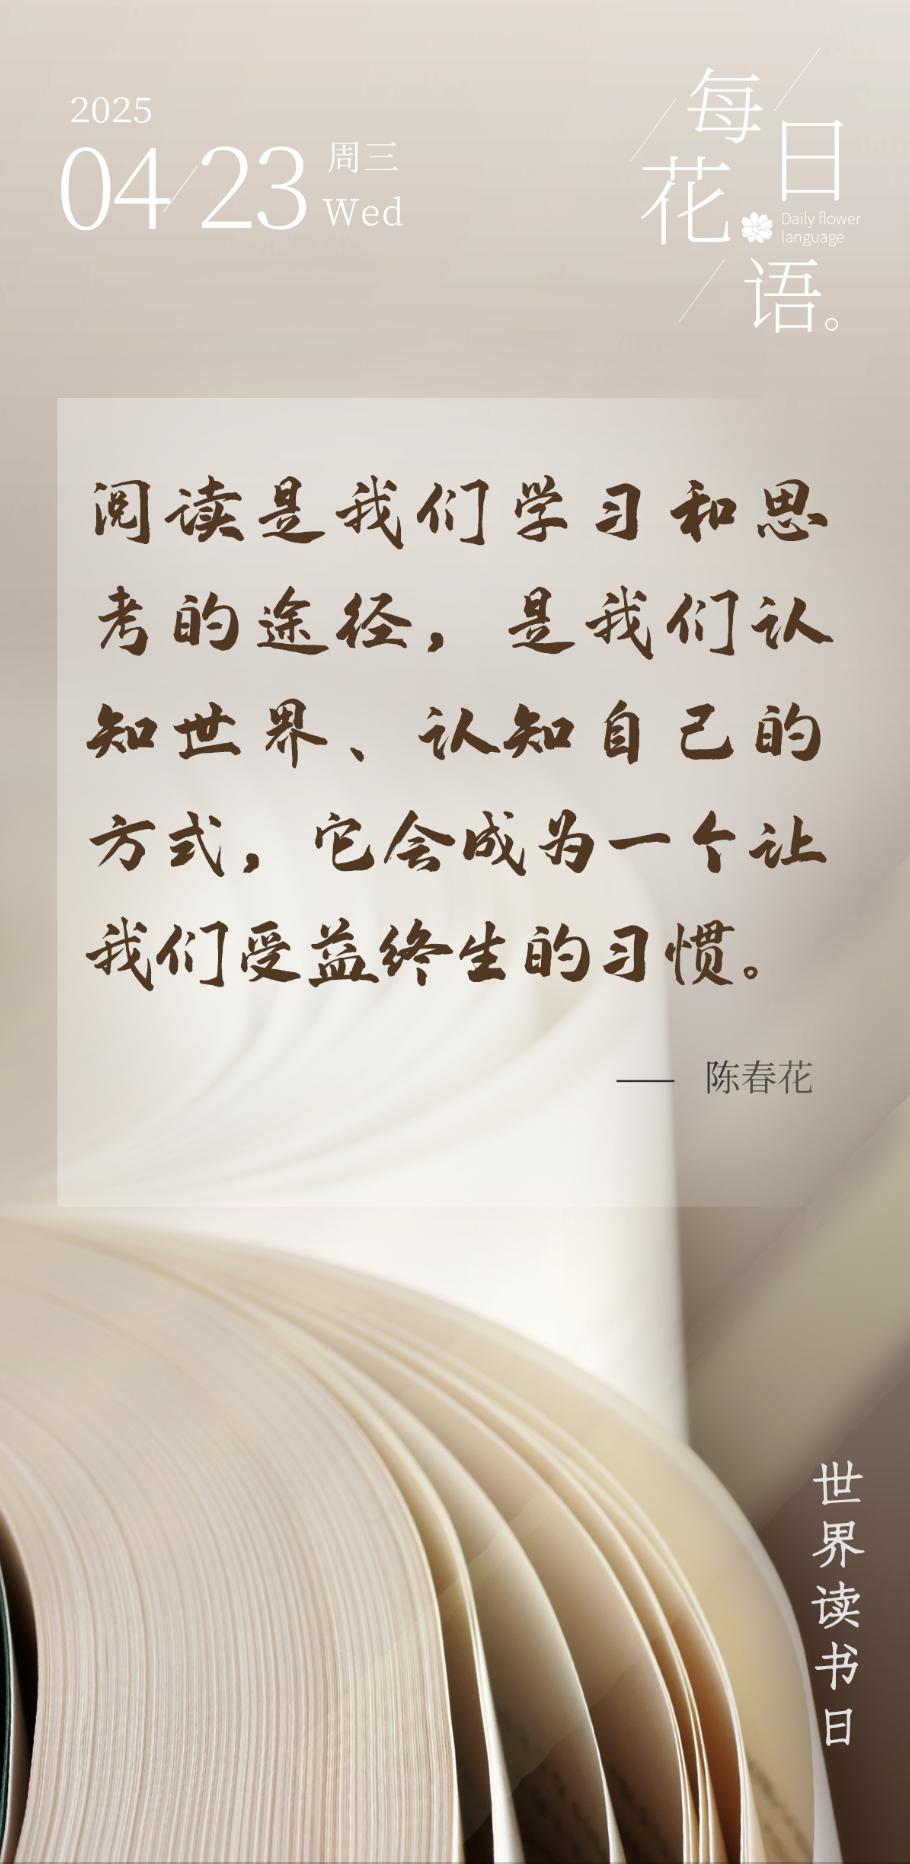 2025
04/23
周三
Wed
每日
花语。
Daily flower
language
阅读是我们学习和思
考的途径，是我们认
知世界、认知自己的
方式，它会成为一个让
我们受益终生的习惯。
—— 陈春花
世界读书日